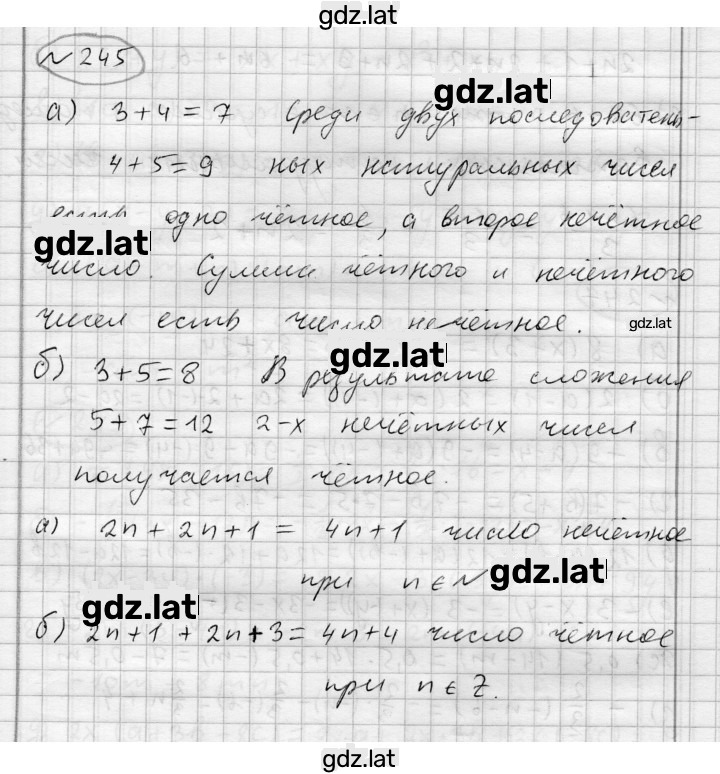 gdz.lat
№245
gdz.lat
а) 3+4=7 Среди двух последователь-
4+5=9 ных натуральных чисел
есть одно чётное, а второе нечётное
gdz.lat
число. Сумма чётного и нечётного
чисел есть число нечётное. gdz.lat
gdz.lat
б) 3+5=8 В результате сложения
5+7=12 2-х нечётных чисел
получается чётное.
а) 2n+2n+1= 4n+1 число нечётное
при n∈N gdz.lat
gdz.lat
б) 2n+1+2n+3= 4n+4 число чётное
при n∈Z.
gdz.lat